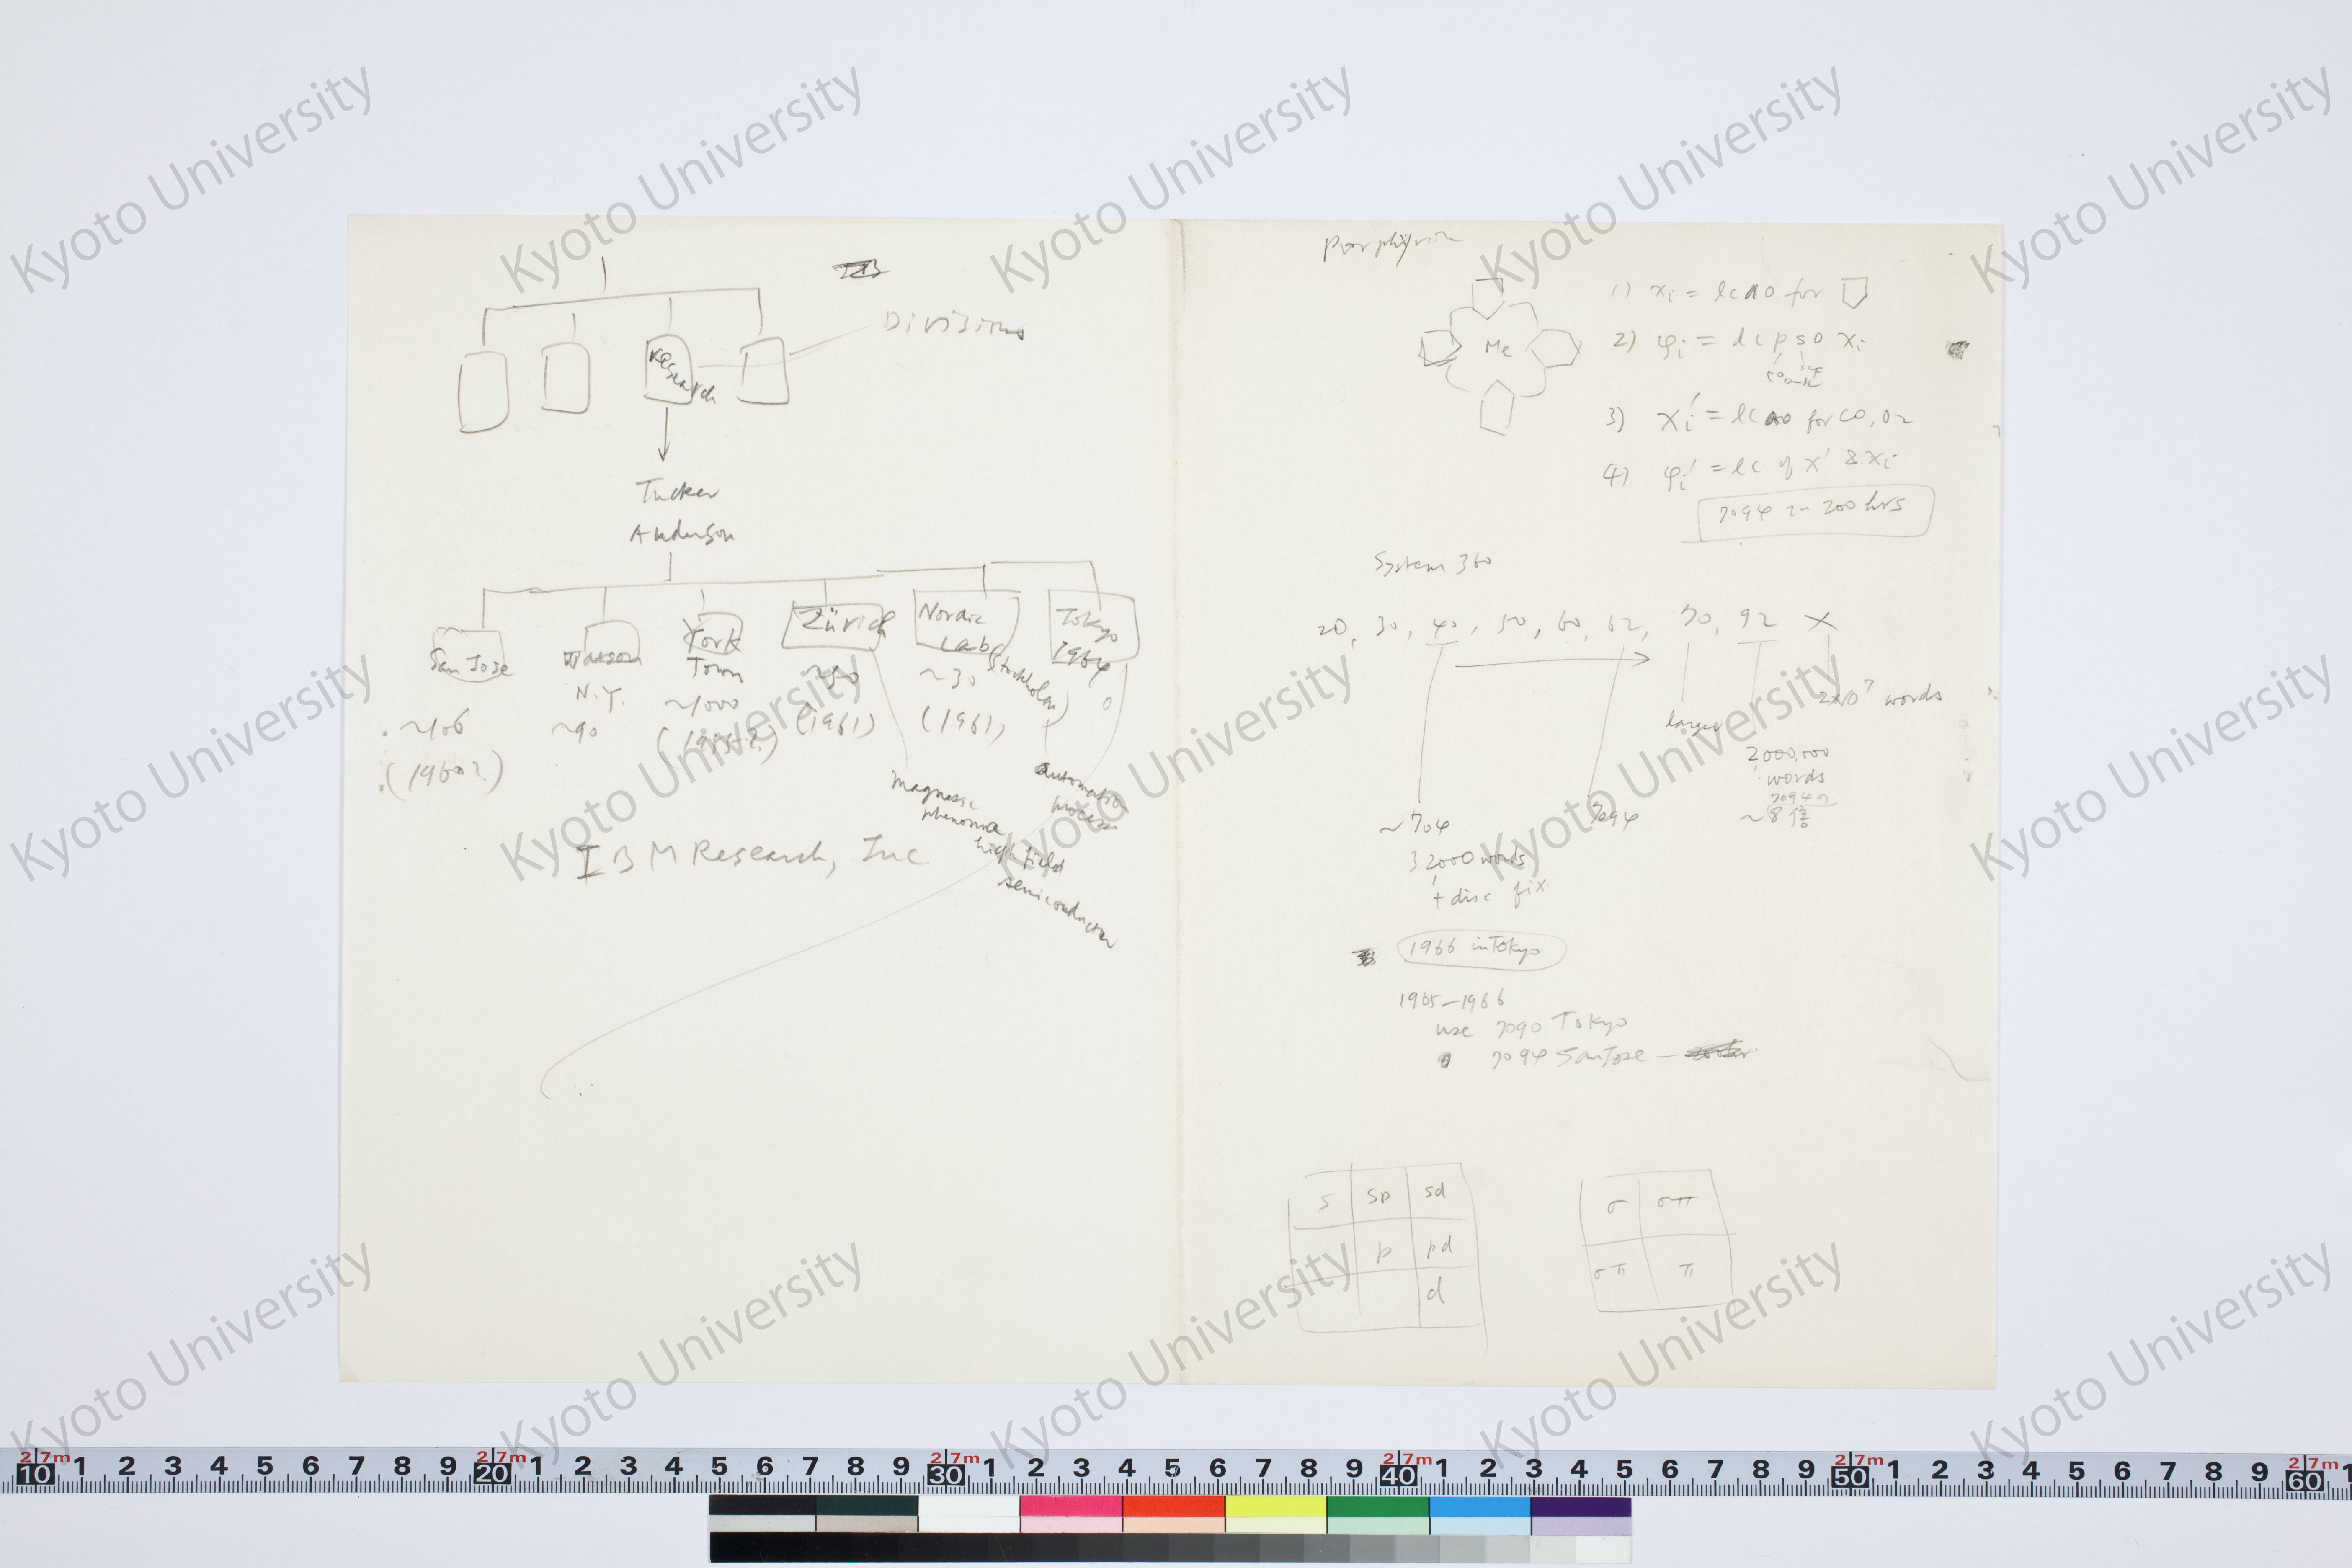 Divisions
Research
Tucker
Anderson
San Jose
~106
(1960?)
Watson
N.Y.
~90
York
Town
~1000
Zürich
~50
(1961)
Nordic
Labs
(Stockholm)
~30
(1961)
Tokyo
1964
0
magnetic
phenomena
high field
semiconductor
automation
process
IBM Research, Inc
Porphyrin
Me
1) χi = lcao for
2) φi = lc pso χi
3) χi′ = lcao for CO, O2
4) φi′ = lc of χ′ & χi
7094 in 200 hrs
System 360
20, 30, 40, 50, 60, 62, 70, 92 X
larger
2×10⁷ words
2,000,000
words
7094の
~8倍
~704
7094
32,000 words
+ disc fix
1966 in Tokyo
1965–1966
use 7090 Tokyo
7094 San Jose –
s sp sd
p pd
d
σ σπ
σπ π
Kyoto University